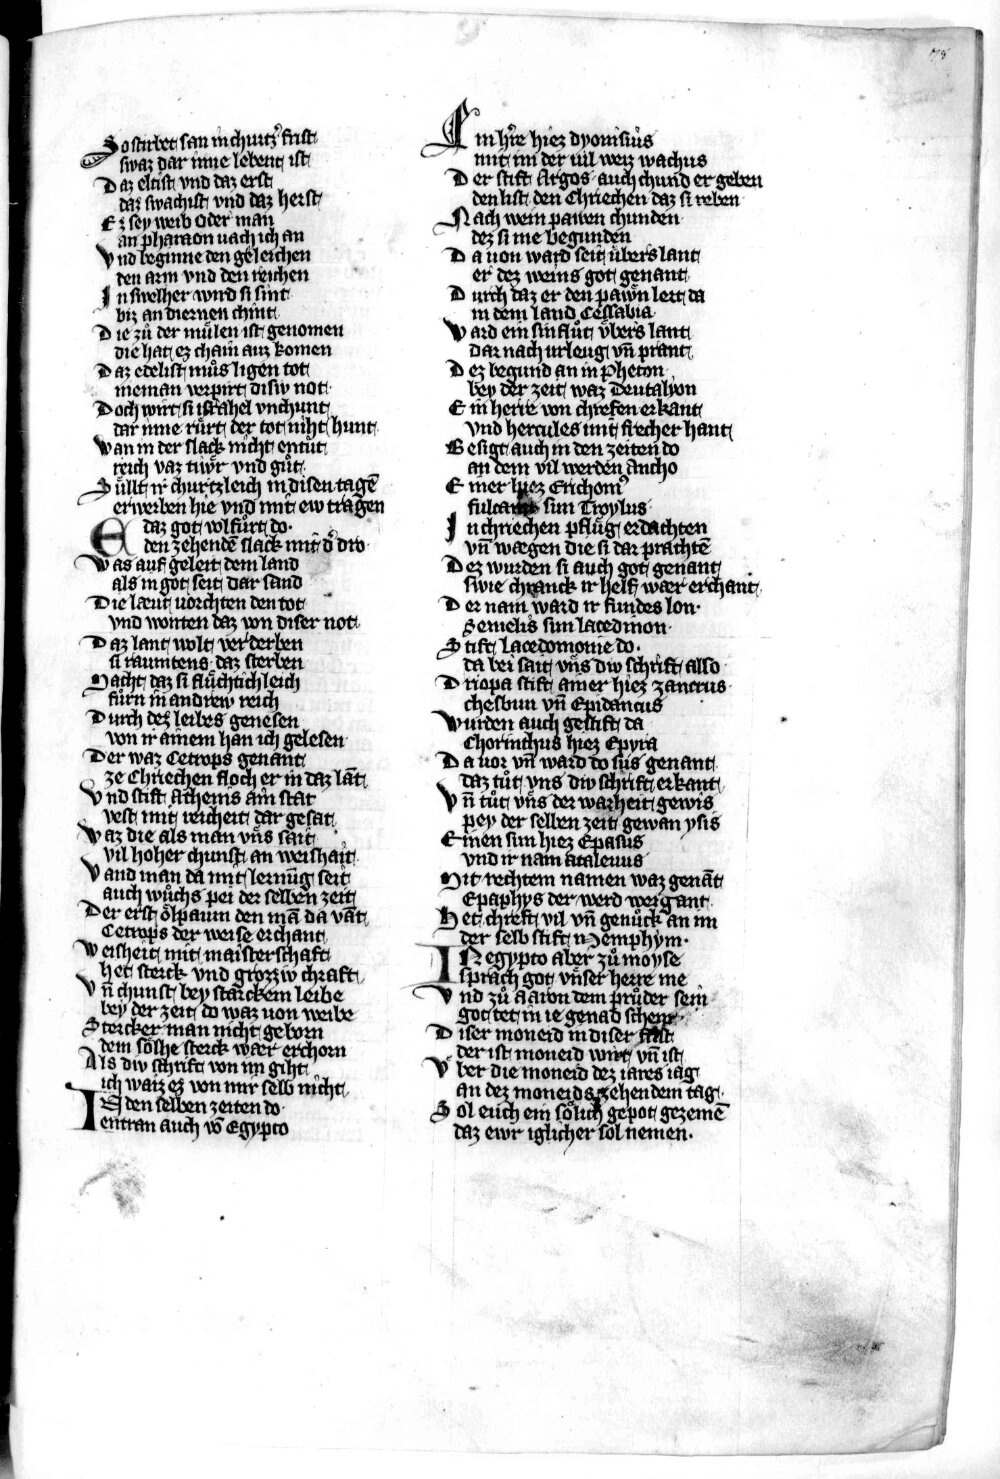 So stirbet san in churtzer frist
swaz dar inne lebent ist
Daz eltist vnd daz erst
daz swachist vnd daz herst
Ez sey weib oder man
an pharaon uach ich an
Vnd beginne den geleichen
den arm vnd den reichen
In swelher wird si sint
biz an diernen chint
Die zů der můlen ist genomen
die hat ez chain auz komen
Daz edelist můs ligen tot
nieman verpirt disiv not
Doch wirt si israhel vnchunt
dar inne růrt der tot niht hunt
Wan in der slack nicht entůt
reich vaz tiwr vnd gůt
Süllt ir churtzleich in disen tagē
erwerben hie vnd mit ew tragen
E daz got volfůrt do
den zehendē slack mit d̾ dro
Was auf geleit dem land
als in got seit dar sand
Die læut vorchten den tot
vnd wonten daz von diser not
Daz lant wolt verderben
si raumtens daz sterben
Macht daz si flüchtichleich
fůrn in andrew reich
Durch dez leibes genesen
von ir ainem han ich gelesen
Der waz Cecrops genant
ze Chriechen floch er in daz lāt
Vnd stift Athenis ain stat
vest mit reicheit dar gesat
Waz die als man vns sait
vil hoher chunst an weishait
Vand man da mit lernūg seit
auch wůchs pei der selben zeit
Der erst ölpaum den mā da vāt
Cetrops der weise erchant
Weisheit mit maisterschaft
het sterck vnd grozziv chraft
Vn̄ chunst bey starckem leibe
bey der zeit do waz von weibe
Stercker man nicht geborn
dem sölhe sterck wær erchorn
Als div schrift von im giht
ich waiz ez von mir selb nicht
IN den selben zeiten do
entran auch vō Egypto
Ein h̾re hiez dyonisius
mit im der vil weiz wachus
Der stift Argos auch chund er geben
den list den Chriechen daz si reben
Nach wein pawen chunden
dez si nie begunden
Da von ward seit übers lant
er dez weins got genant
Durch daz er den pawn lert da
in dem land Cessabia
Ward ein sinflůt vbers lant
dar nach vrleug vn̄ prant
Dez begund an in Pheton
bey der zeit waz Deutalyon
Ein herre von chrefen erkant
vnd hercules mit frecher hant
Gesigt auch in den zeiten do
an dem vil werden Ancho
Einer hiez Erichoni9
sun Troylus
In chriechen pflůg erdachten
vn̄ wægen die si dar prachtē
Dez wurden si auch got genant
swie chranck ir helf wær erchant
Der nam ward ir fundes lon
Semelis sun lacedmon
Stift lacedomonie do
da bei sait vns div schrift also
Driopa stift ainer hiez zancrus
chesbun vn̄ Epidancus
Wurden auch gestift da
Chorinthus hiez Epyra
Da vor vn̄ ward do sus genant
daz tůt vns div schrift erkant
Vn̄ tůt vns der warheit gewis
pey der selben zeit gewan ysis
Einen sun hiez Epasus
vnd ir nam ataleuus
Mit rechtem namen waz genāt
Epaphys der werd weigant
Het chreft vil vn̄ genůck an im
der selb stift Memphym
IN egypto aber zů moyse
sprach got vnser herre me
Vnd zů Aaron dem průder sein
got tet in ie genad schein
Diser moneid in diser frist
der ist moneid wirt vn̄ ist
Vber die moneid dez iares iag
an dez moneids zehendem tag
Sol euch ein sölich gepot gezemē
daz ewr iglicher sol nemen